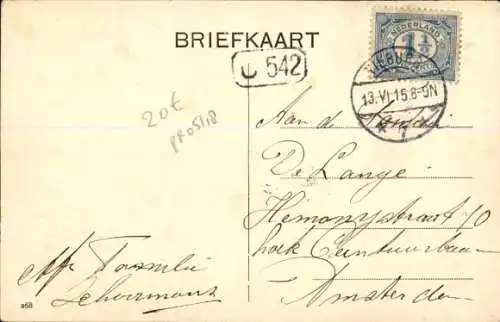 BRIEFKAART
NEDERLAND
1½
542
13.VI.15.8-9N
20€
PF05118
Aan de Familie
De Lange
Hemonystraat 10
hoek Ceintuurbaan
Amsterdam
Afz Familie
Schoormans
268